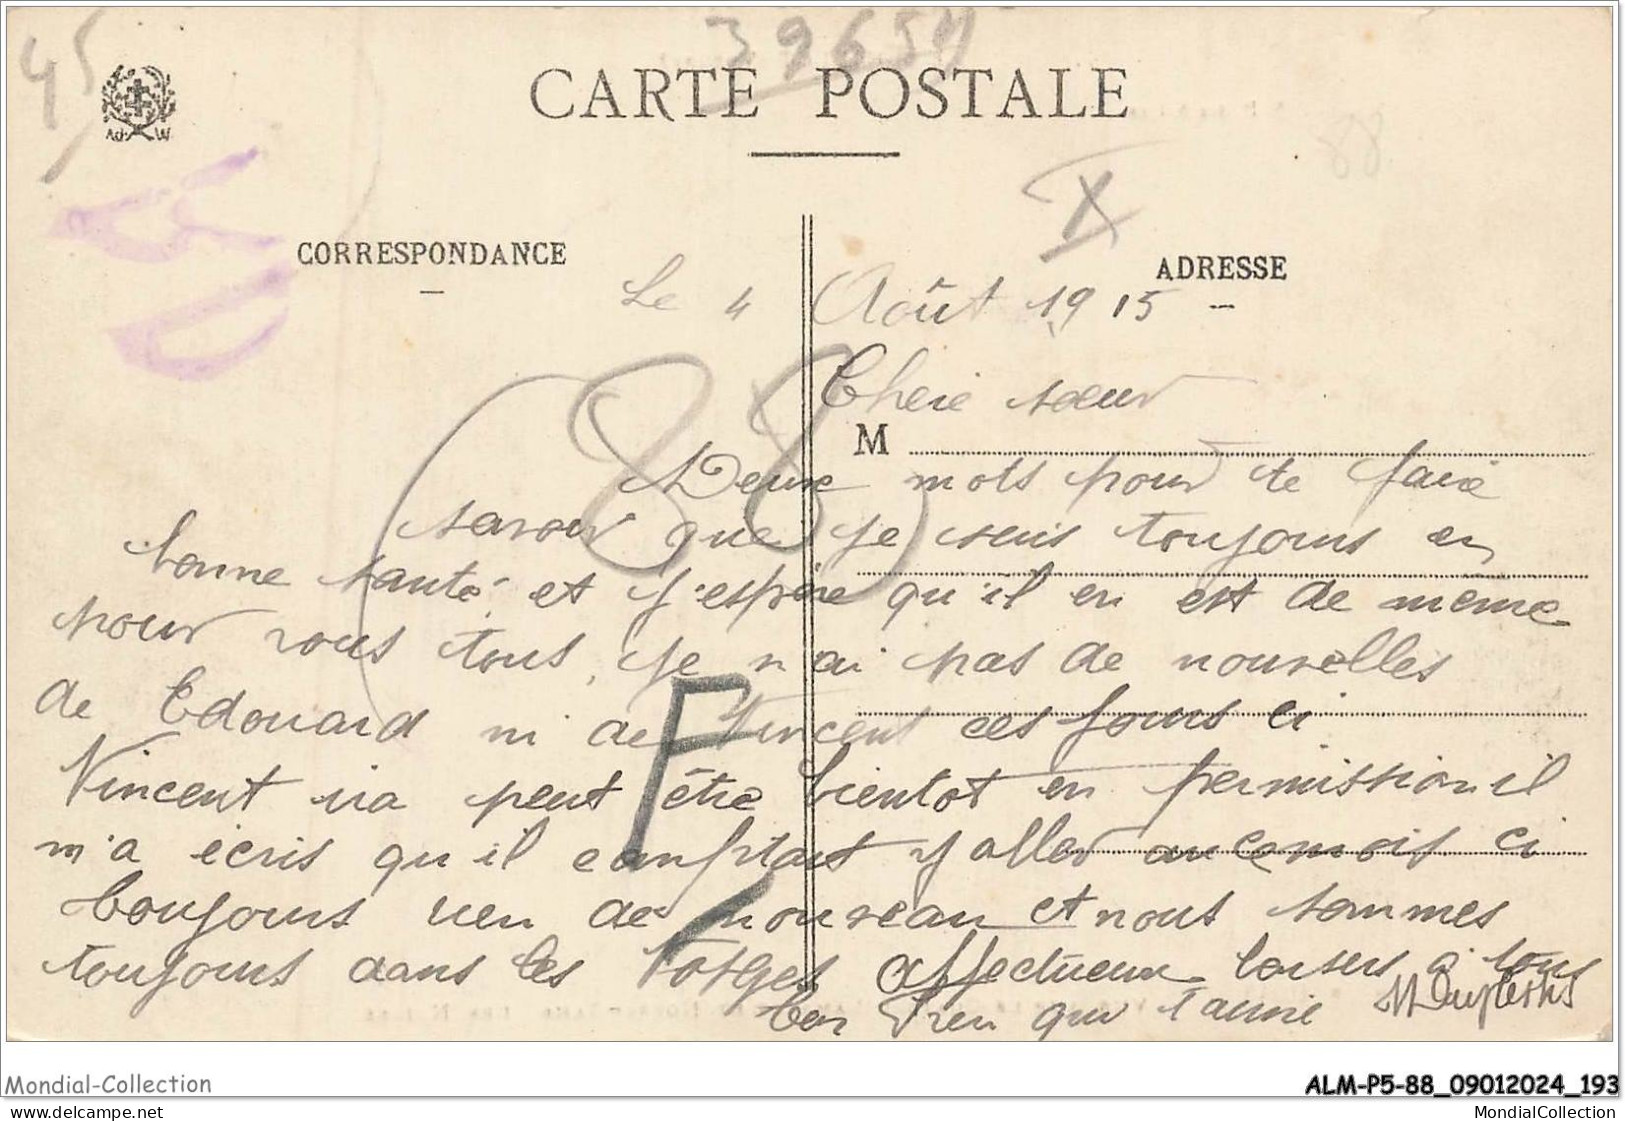 45
39654
CARTE POSTALE
Ad W
88
X
CORRESPONDANCE
ADRESSE
Le 4 Août 1915
(88)
Cheie sœur
M
Deux mots pour te faire
savoir que je suis toujours en
bonne santé, et j'espère qu'il en est de même
pour vous tous, je n'ai pas de nouvelles
de Edouard ni de Vincent ces jours ci
Vincent ira peut être bientot en permission il
m'a écris qu'il comptais y aller au ce mois ci
Toujours rien de nouveau et nous sommes
toujours dans les Vosges affectueux baisers a tous
Ton Frere qui t'aime MDuplessis
Mondial-Collection
ALM-P5-88_09012024_193
www.delcampe.net
MondialCollection